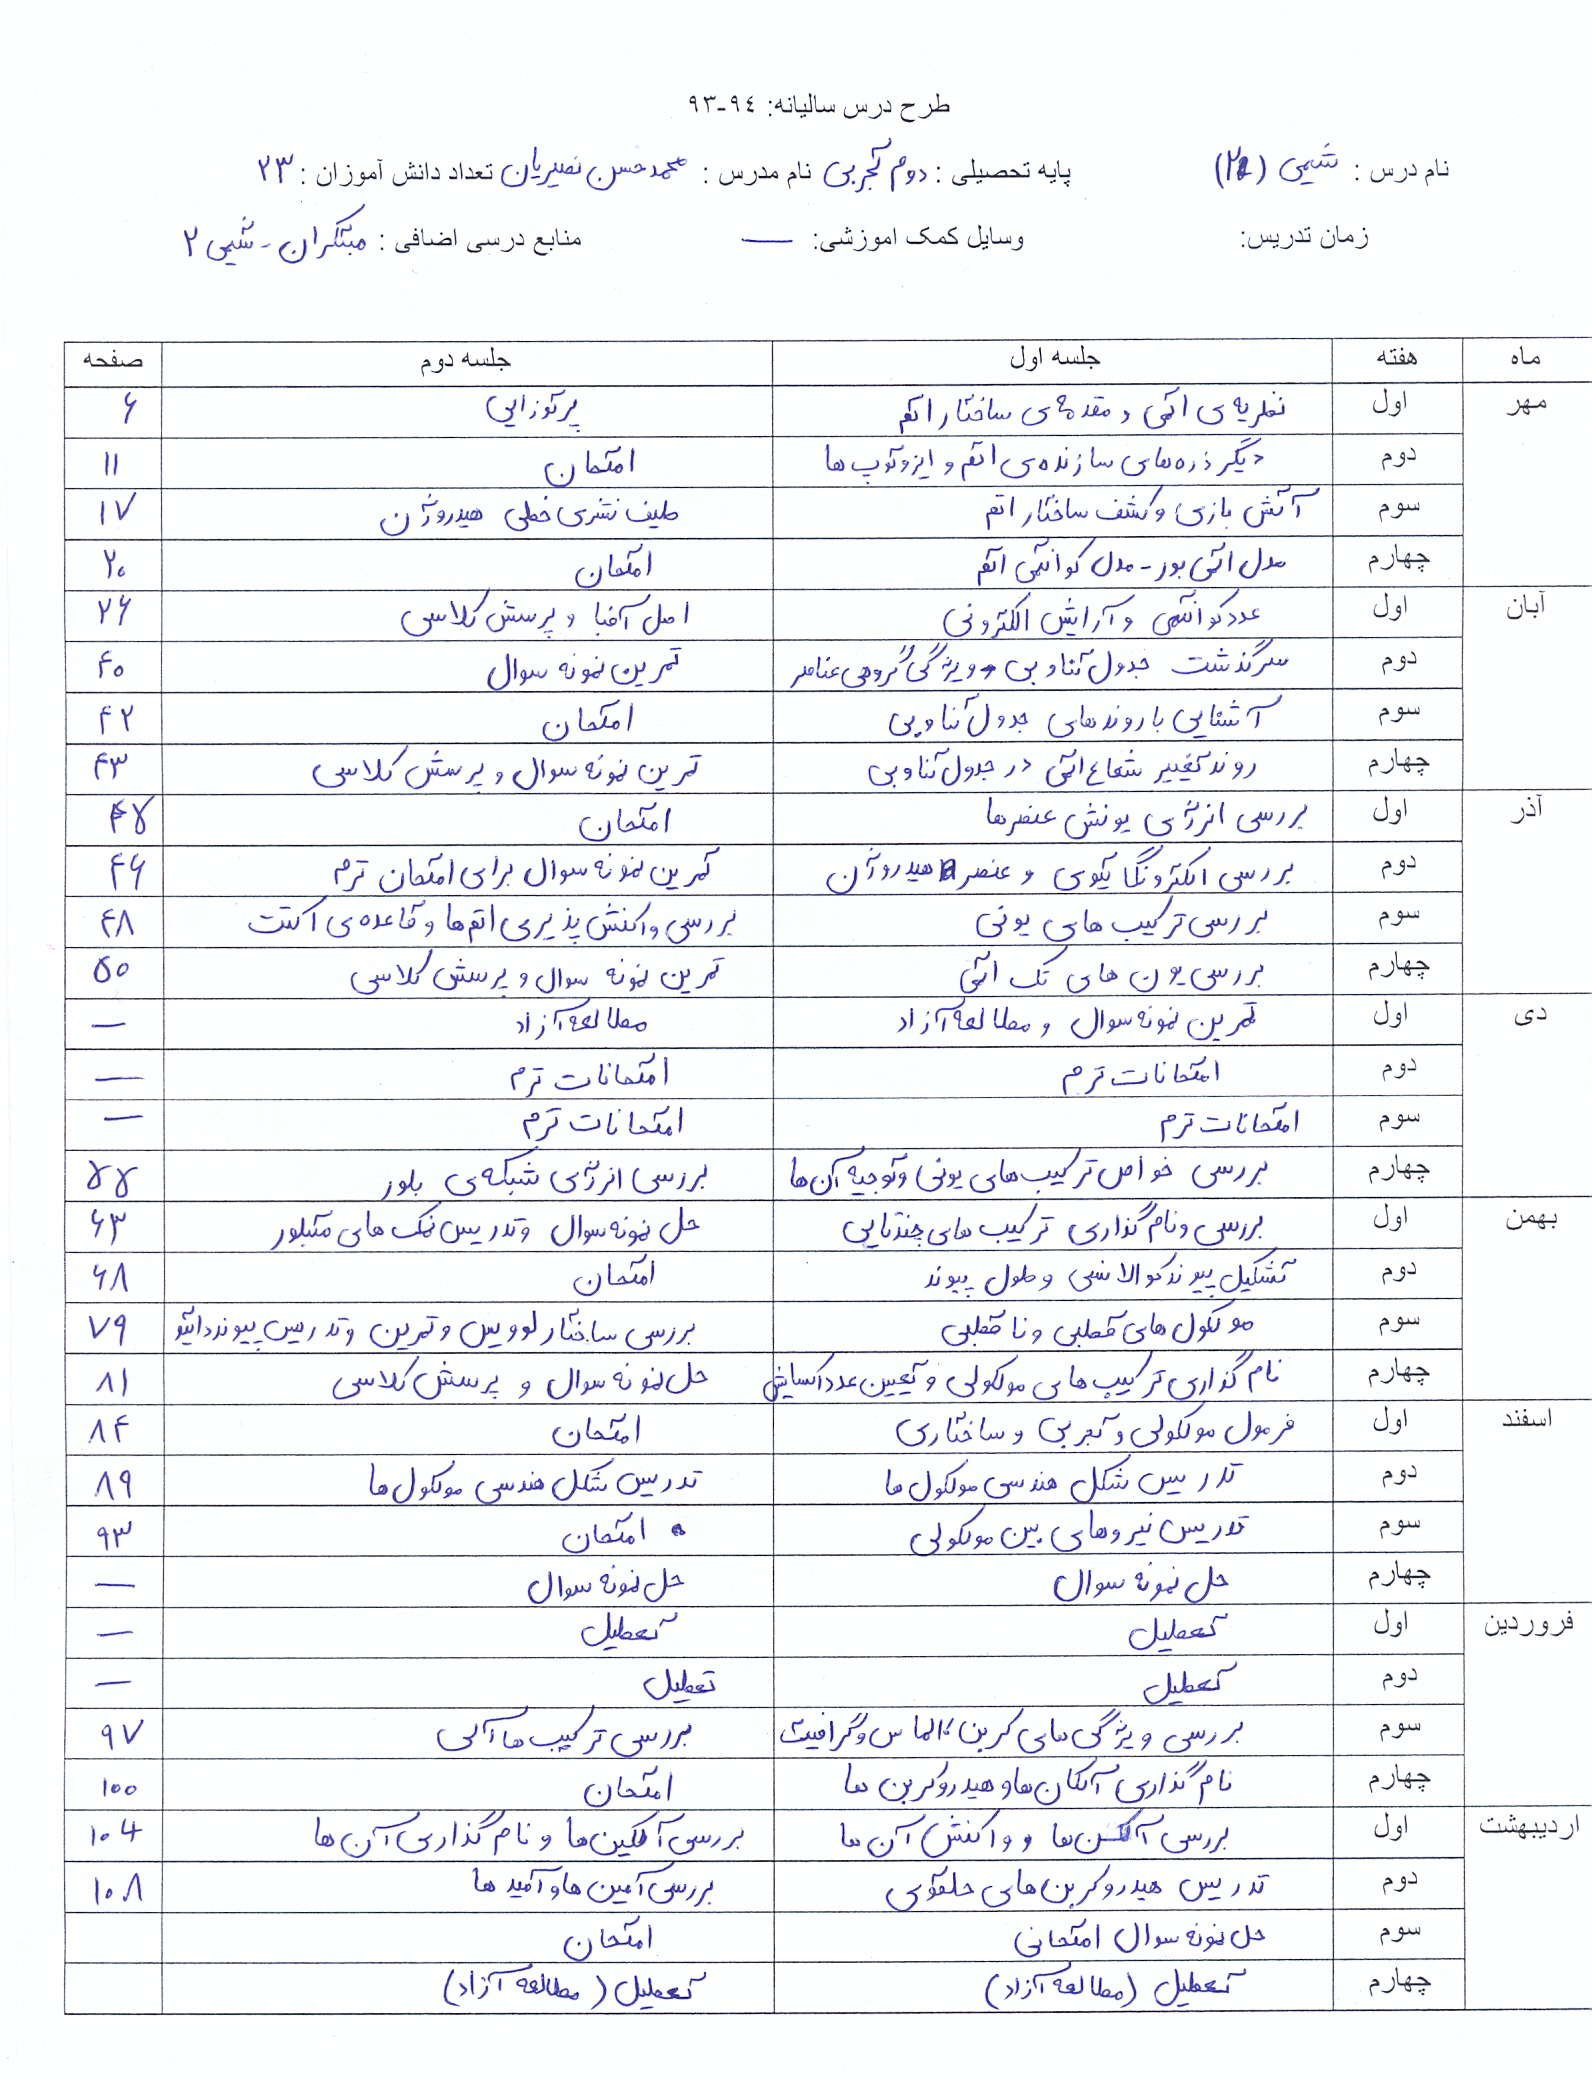 طرح درس سالیانه: ۹۴-۹۳
نام درس : شیمی (۲) پایه تحصیلی : دوم تجربی نام مدرس : محمدحسن نصیریان تعداد دانش آموزان : ۲۳
زمان تدریس: وسایل کمک اموزشی: — منابع درسی اضافی : مبتکران - شیمی ۲
ماه هفته جلسه اول جلسه دوم صفحه
مهر اول نظریه‌ی اتمی و مقدمه‌ی ساختار اتم پرتوزایی ۶
دوم دیگر ذره‌های سازنده‌ی اتم و ایزوتوپ ها امتحان ۱۱
سوم آتش بازی و کشف ساختار اتم طیف نشری خطی هیدروژن ۱۷
چهارم مدل اتمی بور - مدل کوانتمی اتم امتحان ۲۰
آبان اول عدد کوانتمی و آرایش الکترونی اصل آفبا و پرسش کلاسی ۲۶
دوم سرگذشت جدول تناوبی و ویژگی گروهی عناصر تمرین نمونه سوال ۴۰
سوم آشنایی با روندهای جدول تناوبی امتحان ۴۲
چهارم روند تغییر شعاع اتمی در جدول تناوبی تمرین نمونه سوال و پرسش کلاسی ۴۳
آذر اول بررسی انرژی یونش عنصرها امتحان ۴۵
دوم بررسی الکترونگاتیوی و عنصر هیدروژن تمرین نمونه سوال برای امتحان ترم ۴۶
سوم بررسی ترکیب های یونی بررسی واکنش پذیری اتم‌ها و قاعده‌ی اکتت ۴۸
چهارم بررسی یون های تک اتمی تمرین نمونه سوال و پرسش کلاسی ۵۰
دی اول تمرین نمونه سوال و مطالعه آزاد مطالعه آزاد —
دوم امتحانات ترم امتحانات ترم —
سوم امتحانات ترم امتحانات ترم —
چهارم بررسی خواص ترکیب‌های یونی و توجیه آن‌ها بررسی انرژی شبکه‌ی بلور ۵۵
بهمن اول بررسی و نام گذاری ترکیب های چندتایی حل نمونه سوال و تدریس نمک های متبلور ۶۳
دوم تشکیل پیوند کووالانسی و طول پیوند امتحان ۶۸
سوم مولکول های قطبی و ناقطبی بررسی ساختار لوویس و تمرین و تدریس پیوند داتیو ۷۹
چهارم نام گذاری ترکیب های مولکولی و تعیین عدد اکسایش حل نمونه سوال و پرسش کلاسی ۸۱
اسفند اول فرمول مولکولی و تجربی و ساختاری امتحان ۸۴
دوم تدریس شکل هندسی مولکول ها تدریس شکل هندسی مولکول ها ۸۹
سوم تدریس نیروهای بین مولکولی امتحان ۹۳
چهارم حل نمونه سوال حل نمونه سوال —
فروردین اول تعطیل تعطیل —
دوم تعطیل تعطیل —
سوم بررسی ویژگی های کربن، الماس و گرافیت بررسی ترکیب ها آلی ۹۷
چهارم نام گذاری آلکان ها و هیدروکربن ها امتحان ۱۰۰
اردیبهشت اول بررسی آلکن ها و واکنش آن ها بررسی آلکین ها و نام گذاری آن ها ۱۰۴
دوم تدریس هیدروکربن‌های حلقوی بررسی آمین ها و آمید ها ۱۰۸
سوم حل نمونه سوال امتحانی امتحان
چهارم تعطیل (مطالعه آزاد) تعطیل (مطالعه آزاد)